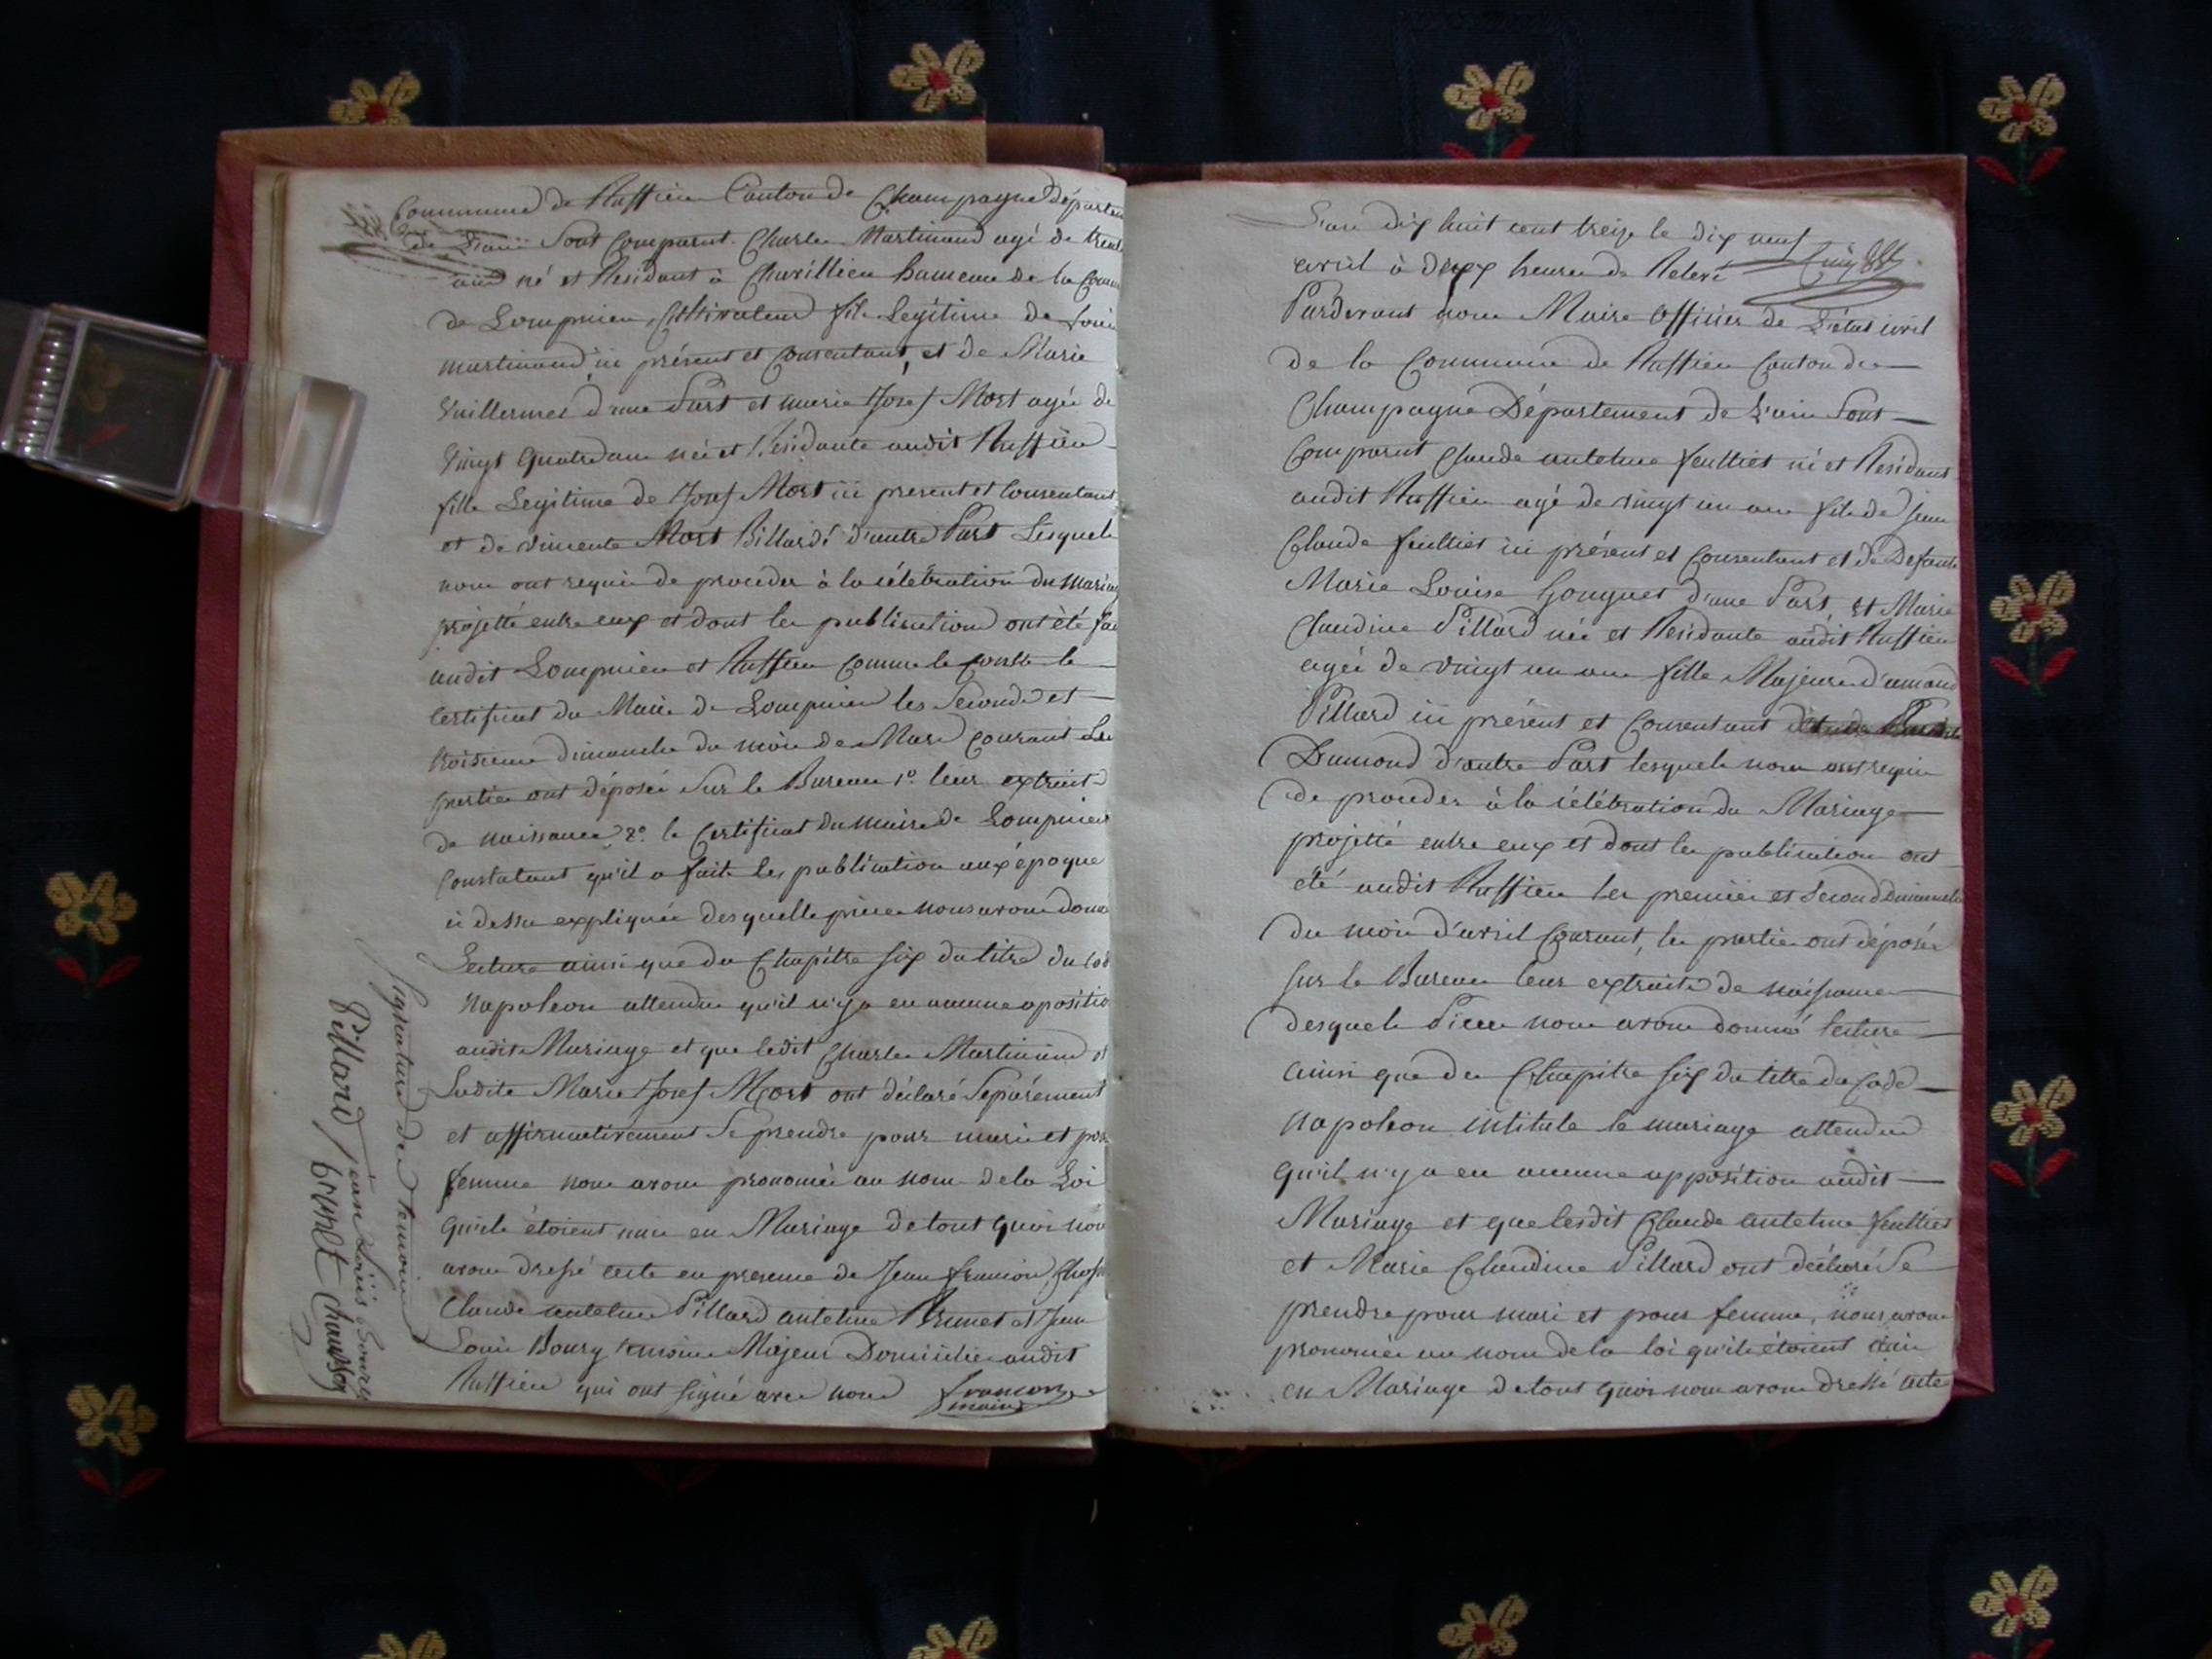 Commune de Ruffieu Canton de Champagne départem
de L'ain Sont Comparut Charle Martinand agé de trent
ans né et Residant à Charillieu hameau de la Comm
de Lompnieu, Cultivateur fils Legitime de Louis
martinand ici présent et Consentant, et de Marie
Vuillermes d'une Part et marie Josef Mort agée de
Vingt quatre ans née et Residante audit Ruffieu
fille Legitime de Josef Mort ici present et Consentant
et de Vincente Mort Billardé d'autre Part Lesquels
nous ont requis de proceder à la célébration du Mariag
projetté entre eux et dont les publications ont été fai
audit Lompnieu et Ruffieu comme le Conste le
Certificat du Maire de Lompnieu les Second et
troisieme dimanche du mois de Mars Courant Les
parties ont déposés Sur le Bureau 1o. leur extrait
de naissance 2o. le Certificat du maire de Lompnieu
Constatant qu'il a fait les publication aux époque
ci dessu expliquée desquelle pièce nous avons donné
Lecture ainsi que du Chapitre six du titre du cod
Napoleon attendu qu'il n'y a eu aucune opositio
audit Mariage et que ledit Charle Martinand et
Ladite Marie Josef Mort ont déclaré Separément
et affirmativement Se prendre pour mari et pour
femme nous avons prononcé au nom de la Loi
qu'ils étoient unis en Mariage de tout quoi nou
avons dressé acte en presence de Jean françois
Claude antelme Pillard antelme Brunet et Jean
Louis Boury temoins Majeurs Domiciliés audit
Ruffieu qui ont signé avec nous françon
maire
Signature des temoins
Pillard jean Louis Boury
brunet Chausson
L'an dix huit cent treize le dix neuf
avril à deux heures de Relevé
Pardevant nous Maire Officier de L'état civil
de la Commune de Ruffieu Canton de
Champagne Département de L'ain Sont
Comparut Claude antelme feulliet né et Residant
audit Ruffieu agé de vingt un ans fils de jean
Claude feulliet ici présent et Consentant et de Defunte
Marie Louise Gouguet d'une Part, et Marie
Claudine Pillard née et Residante audit Ruffieu
agée de vingt un ans fille Majeure d'amand
Pillard ici présent et Consentant
Dumond d'autre Part lesquels nous ont requis
de proceder à la célébration du Mariage
projetté entre eux et dont les publication ont
été audit Ruffieu les premier et Second Dimanche
du mois d'avril Courant, les parties ont déposés
sur le Bureau leur extraits de naissance
desquels Pieces nous avons donné lecture
ainsi que du Chapitre six du titre du Code
Napoleon intitule le mariage attendu
qu'il n'y a eu aucune opposition audit
Mariage et que lesdit Claude antelme feulliet
et Marie Claudine Pillard ont déclaré Se
prendre pour mari et pour femme, nous avons
prononcé au nom de la loi qu'ils étoient unis
en Mariage de tout quoi nous avons dressé acte